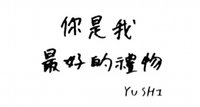 你是我
最好的禮物
YUSHI